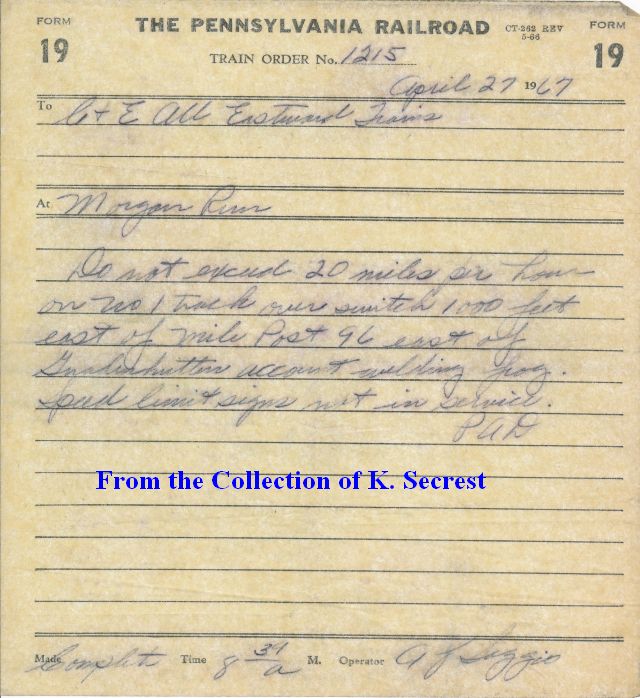 FORM 19 THE PENNSYLVANIA RAILROAD CT-262 REV 5-66 FORM 19
TRAIN ORDER No. 1215
April 27 1967
To C+E All Eastward Trains
At Morgan Run
Do not exceed 20 miles per hour
on No 1 track over switch 1000 feet
east of Mile Post 96 east of
Gnadenhutten account welding frog.
Speed limit signs not in service.
From the Collection of K. Secrest
Made Complete Time 8 34 a M. Operator